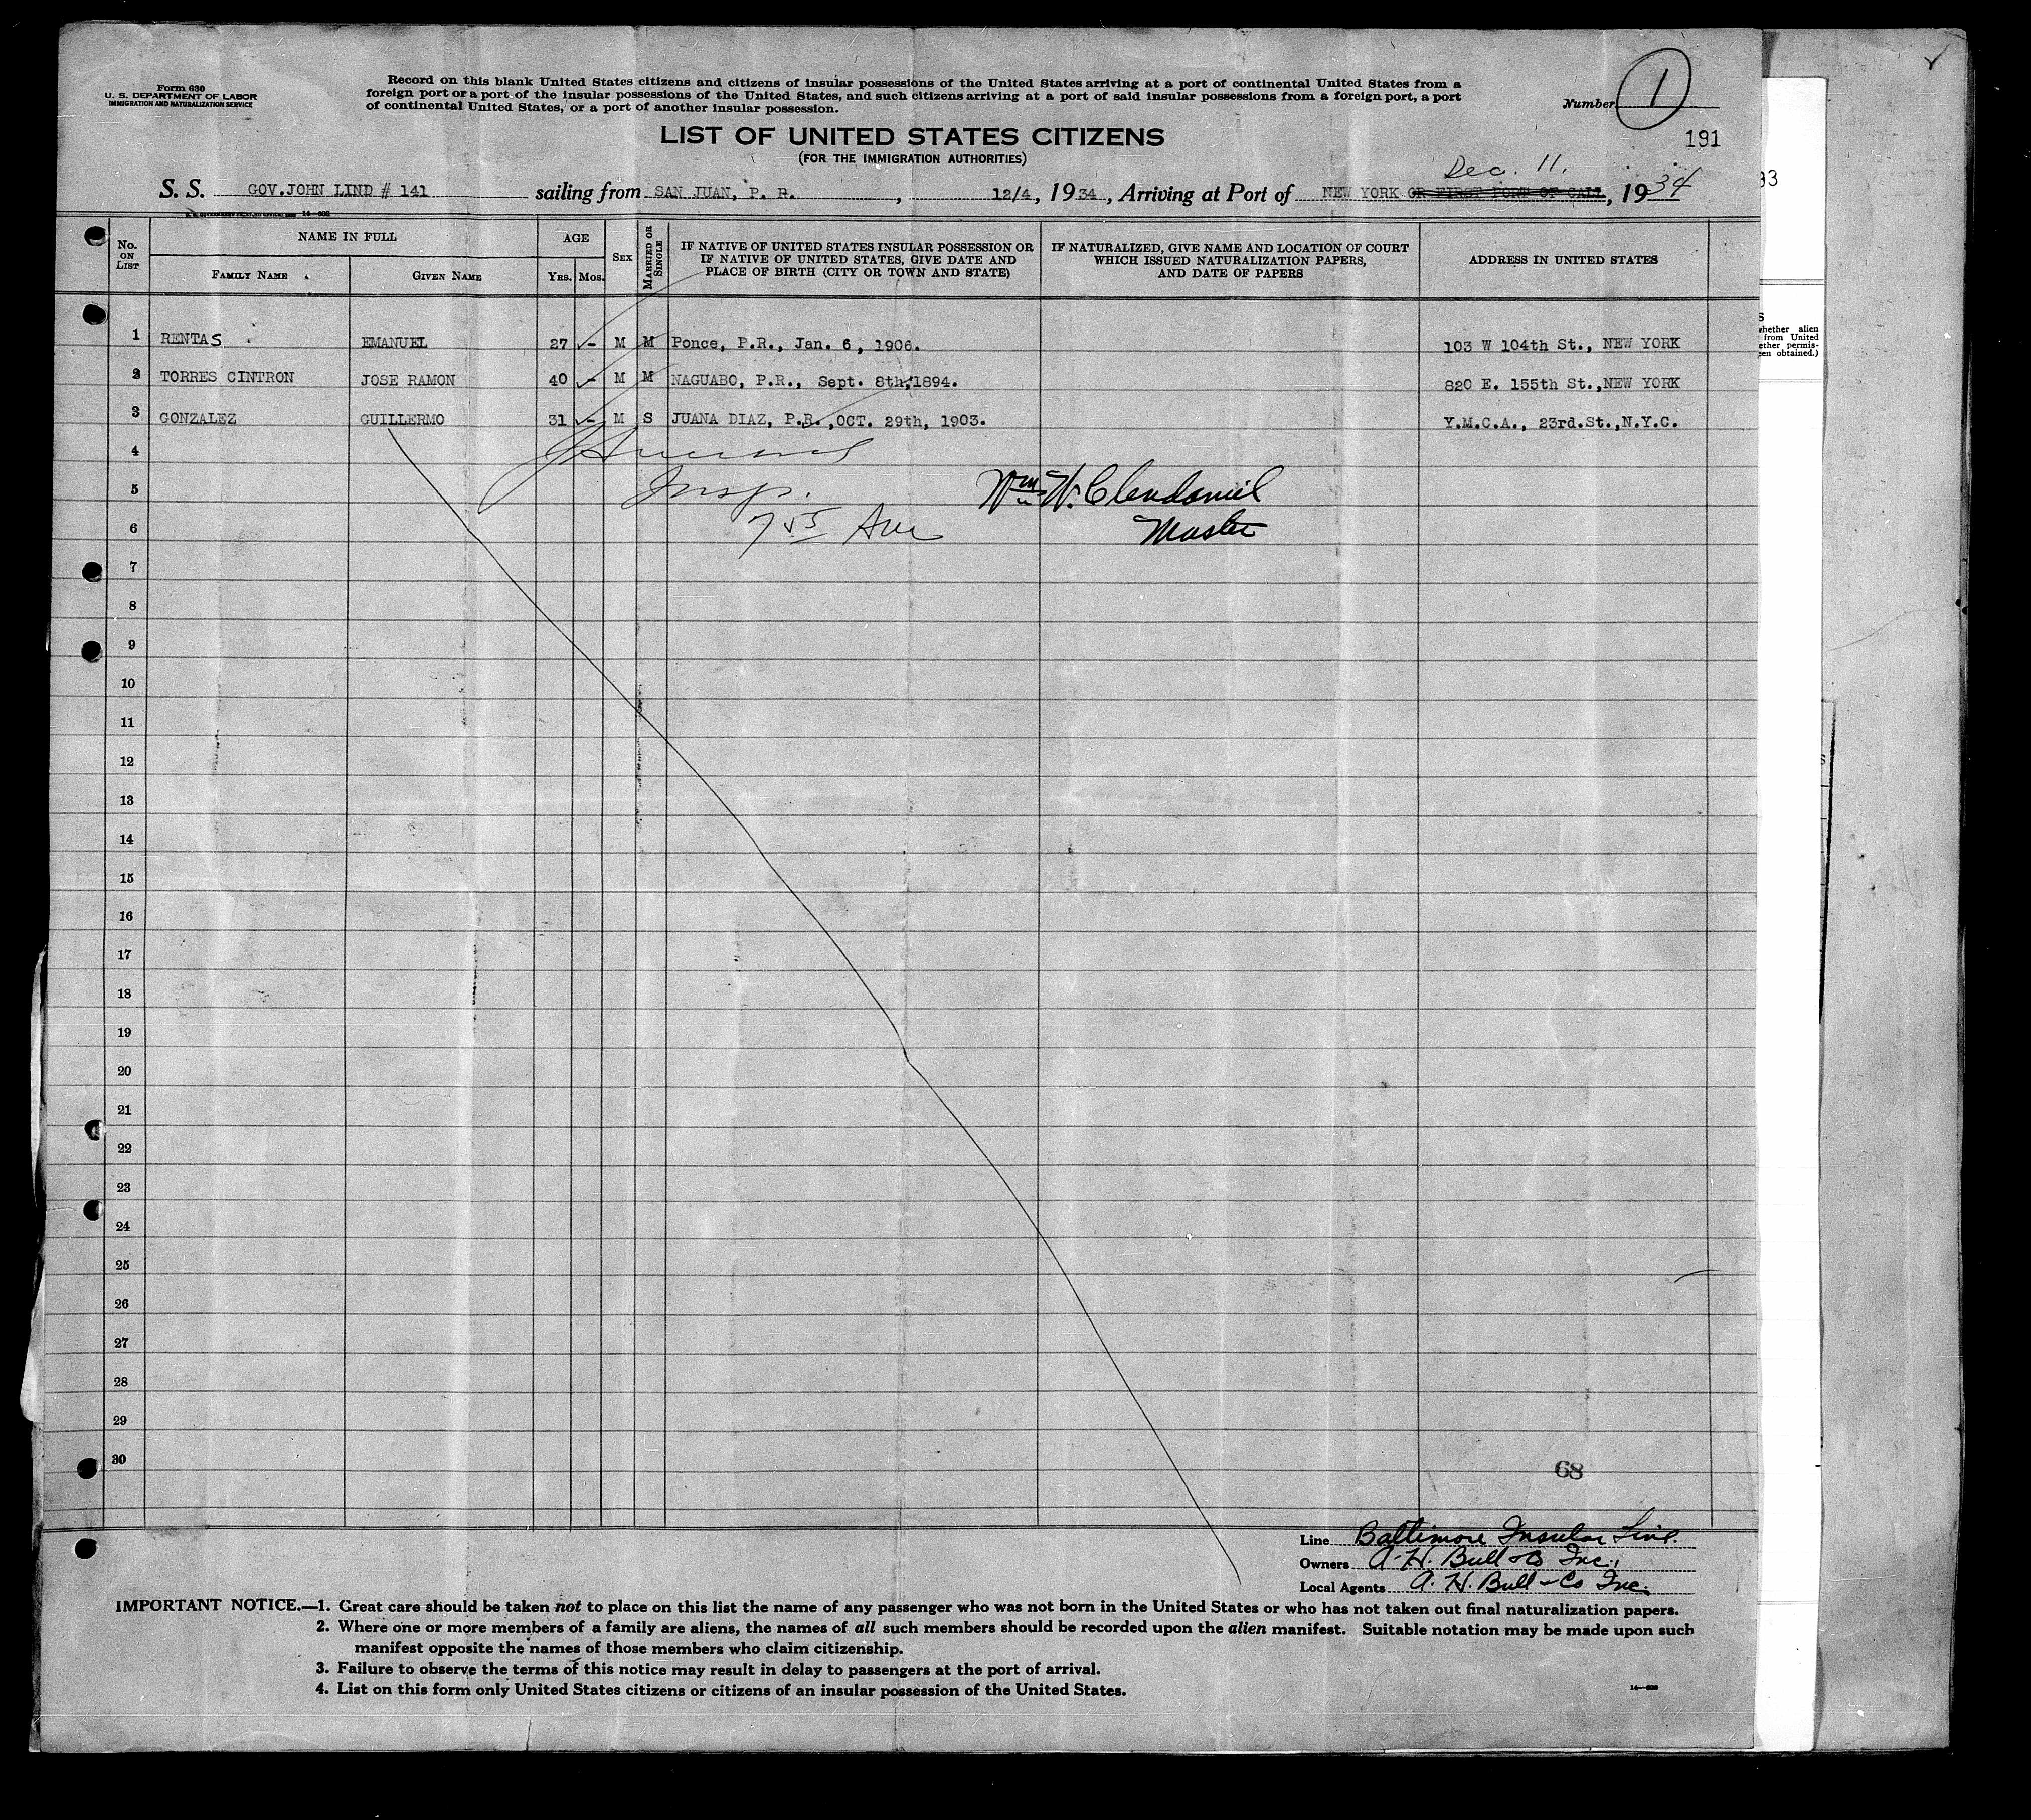 Form 630
U. S. DEPARTMENT OF LABOR
IMMIGRATION AND NATURALIZATION SERVICE
Record on this blank United States citizens and citizens of insular possessions of the United States arriving at a port of continental United States from a
foreign port or a port of the insular possessions of the United States, and such citizens arriving at a port of said insular possessions from a foreign port, a port
of continental United States, or a port of another insular possession.
Number 1
LIST OF UNITED STATES CITIZENS
191
(FOR THE IMMIGRATION AUTHORITIES)
Dec. 11.
93
S. S. GOV.JOHN LIND # 141 sailing from SAN JUAN, P. R. , 12/4, 1934, Arriving at Port of NEW YORK OR FIRST PORT OF CALL, 1934
No. ON LIST
NAME IN FULL
FAMILY NAME
GIVEN NAME
AGE
YRS. MOS.
SEX
MARRIED OR SINGLE
IF NATIVE OF UNITED STATES INSULAR POSSESSION OR
IF NATIVE OF UNITED STATES, GIVE DATE AND
PLACE OF BIRTH (CITY OR TOWN AND STATE)
IF NATURALIZED, GIVE NAME AND LOCATION OF COURT
WHICH ISSUED NATURALIZATION PAPERS,
AND DATE OF PAPERS
ADDRESS IN UNITED STATES
whether alien
from United
ether permis-
een obtained.)
1 RENTAS EMANUEL 27 - M M Ponce, P.R., Jan. 6, 1906. 103 W 104th St., NEW YORK
2 TORRES CINTRON JOSE RAMON 40 - M M NAGUABO, P.R., Sept. 8th,1894. 820 E. 155th St.,NEW YORK
3 GONZALEZ GUILLERMO 31 - M S JUANA DIAZ, P.R.,OCT. 29th, 1903. Y.M.C.A., 23rd.St.,N.Y.C.
4
5 Insp. Wm. W. Clendaniel
6 Master
7
8
9
10
11
12
13
14
15
16
17
18
19
20
21
22
23
24
25
26
27
28
29
30
68
Line Baltimore Insular Line.
Owners A. H. Bull & Co Inc.
Local Agents A. H. Bull & Co Inc.
IMPORTANT NOTICE.—1. Great care should be taken not to place on this list the name of any passenger who was not born in the United States or who has not taken out final naturalization papers.
2. Where one or more members of a family are aliens, the names of all such members should be recorded upon the alien manifest. Suitable notation may be made upon such
manifest opposite the names of those members who claim citizenship.
3. Failure to observe the terms of this notice may result in delay to passengers at the port of arrival.
4. List on this form only United States citizens or citizens of an insular possession of the United States.